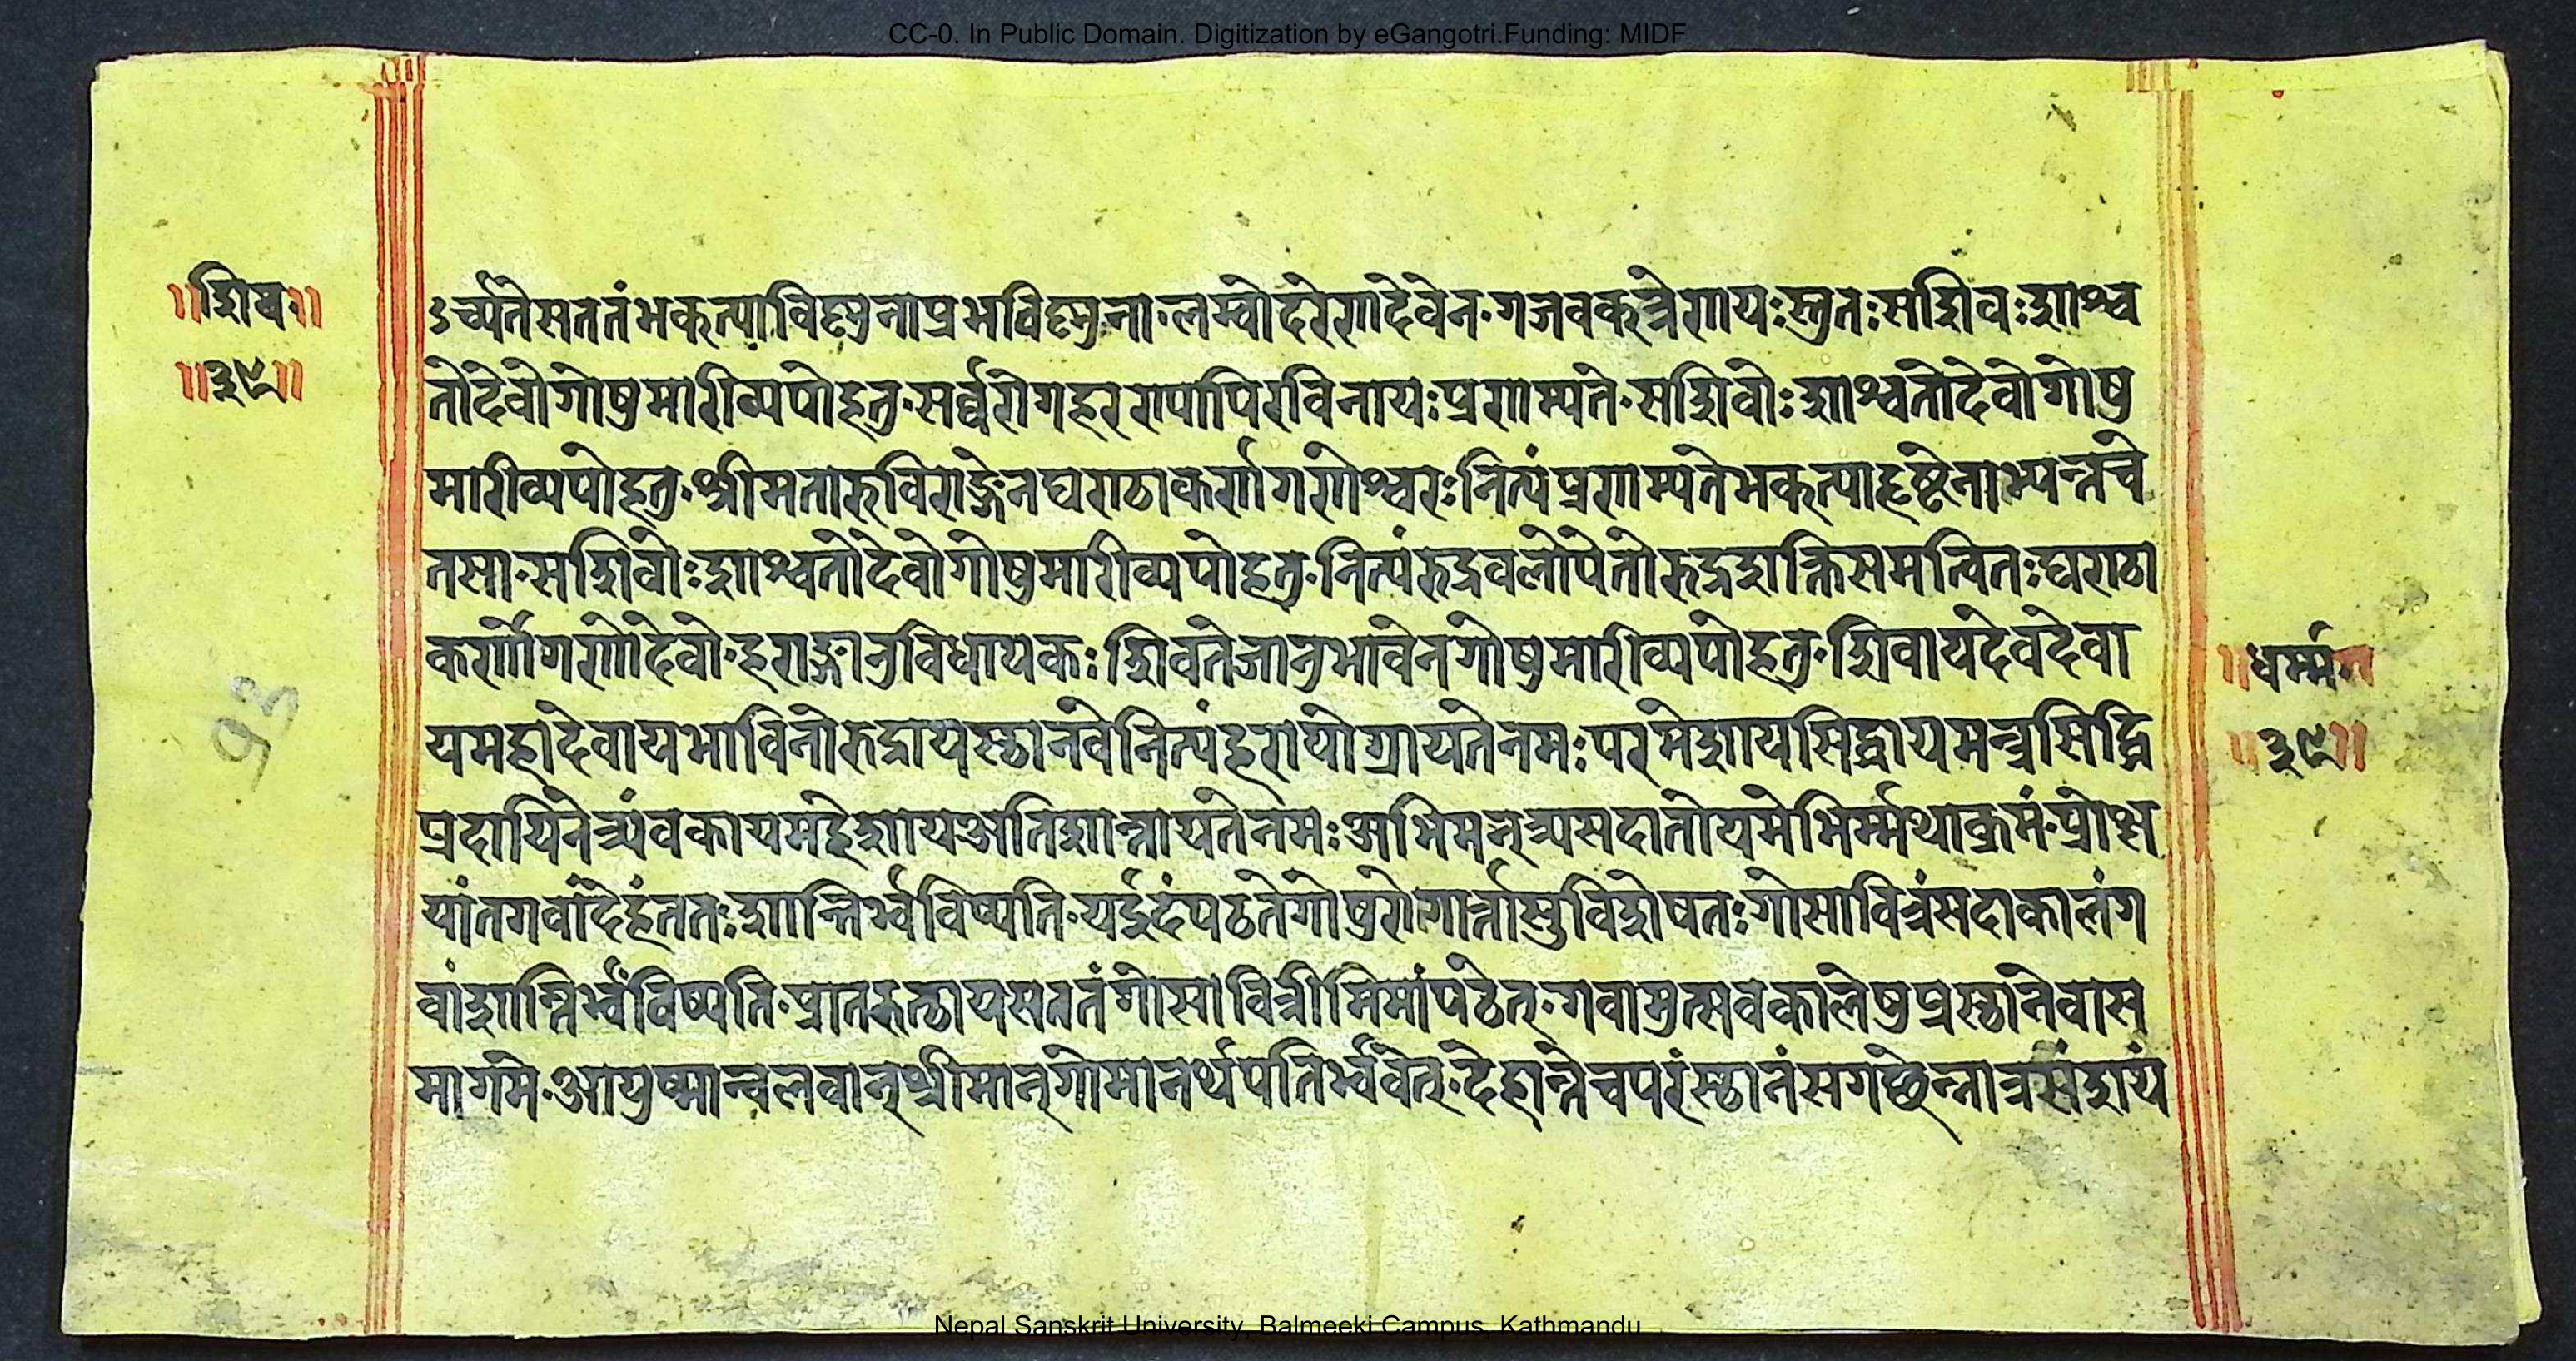 CC-0. In Public Domain. Digitization by eGangotri.Funding: MIDF
॥शिव॥
॥३९॥
ऽर्च्यतेसततंभक्त्याविष्णुनाप्रभविष्णुना॰लम्वोदरेणदेवेन॰गजवक्त्रेणयःस्तुतःसशिवःशाश्व
तोदेवोगोषुमारीव्यपोहतु॰सर्व्वरोगहररापापिरविनायःप्रणम्यते॰सशिवोःशाश्वतोदेवोगोषु
मारीव्यपोहतु॰श्रीमतारुविराङ्गेनघण्टाकर्णगणेश्वरःनित्यंप्रणम्यतेभक्त्याहृष्टेनाभ्यन्तचे
तसा॰सशिवोःशाश्वतोदेवोगोषुमारीव्यपोहतु॰नित्यंरुद्रवलोपेतोरुद्रशक्तिसमन्वितःघण्टा
कर्णोगणोदेवो॰हराज्ञानुविधायकःशिवतेजानुभावेनगोषुमारीव्यपोहतु॰शिवायदेवदेवा
यमहादेवायभाविनोरुद्रायस्थानवेनित्यंहरायोग्रायतेनमःपरमेशायसिद्धायमन्त्रसिद्धि
प्रदायिनेत्र्यंवकायमहेशायअतिशान्तायतेनमःअभिमन्त्र्यसदातोयमेभिर्म्मथाक्रमं॰प्रोक्ष
यांतगवांदेहंततःशान्तिर्भ्वविष्यति॰यर्इदंपठतेगोषुरोगार्त्तासुविशेषतःगोसावित्रंसदाकालंग
वांशान्तिर्भ्वंविष्यति॰प्रातरुत्थायसततंगोसावित्रीमिमांपठेत्॰गवामुत्सवकालेषुप्रस्थानेवास
मागमे॰आयुष्मान्वलवान्श्रीमान्गोमानर्थपतिर्भ्ववेत्॰देहान्तेचपरंस्थानंसगच्छेन्नात्रसंशयं
॥धर्म्म॥
॥३९॥
१३
Nepal Sanskrit University, Balmeeki Campus, Kathmandu